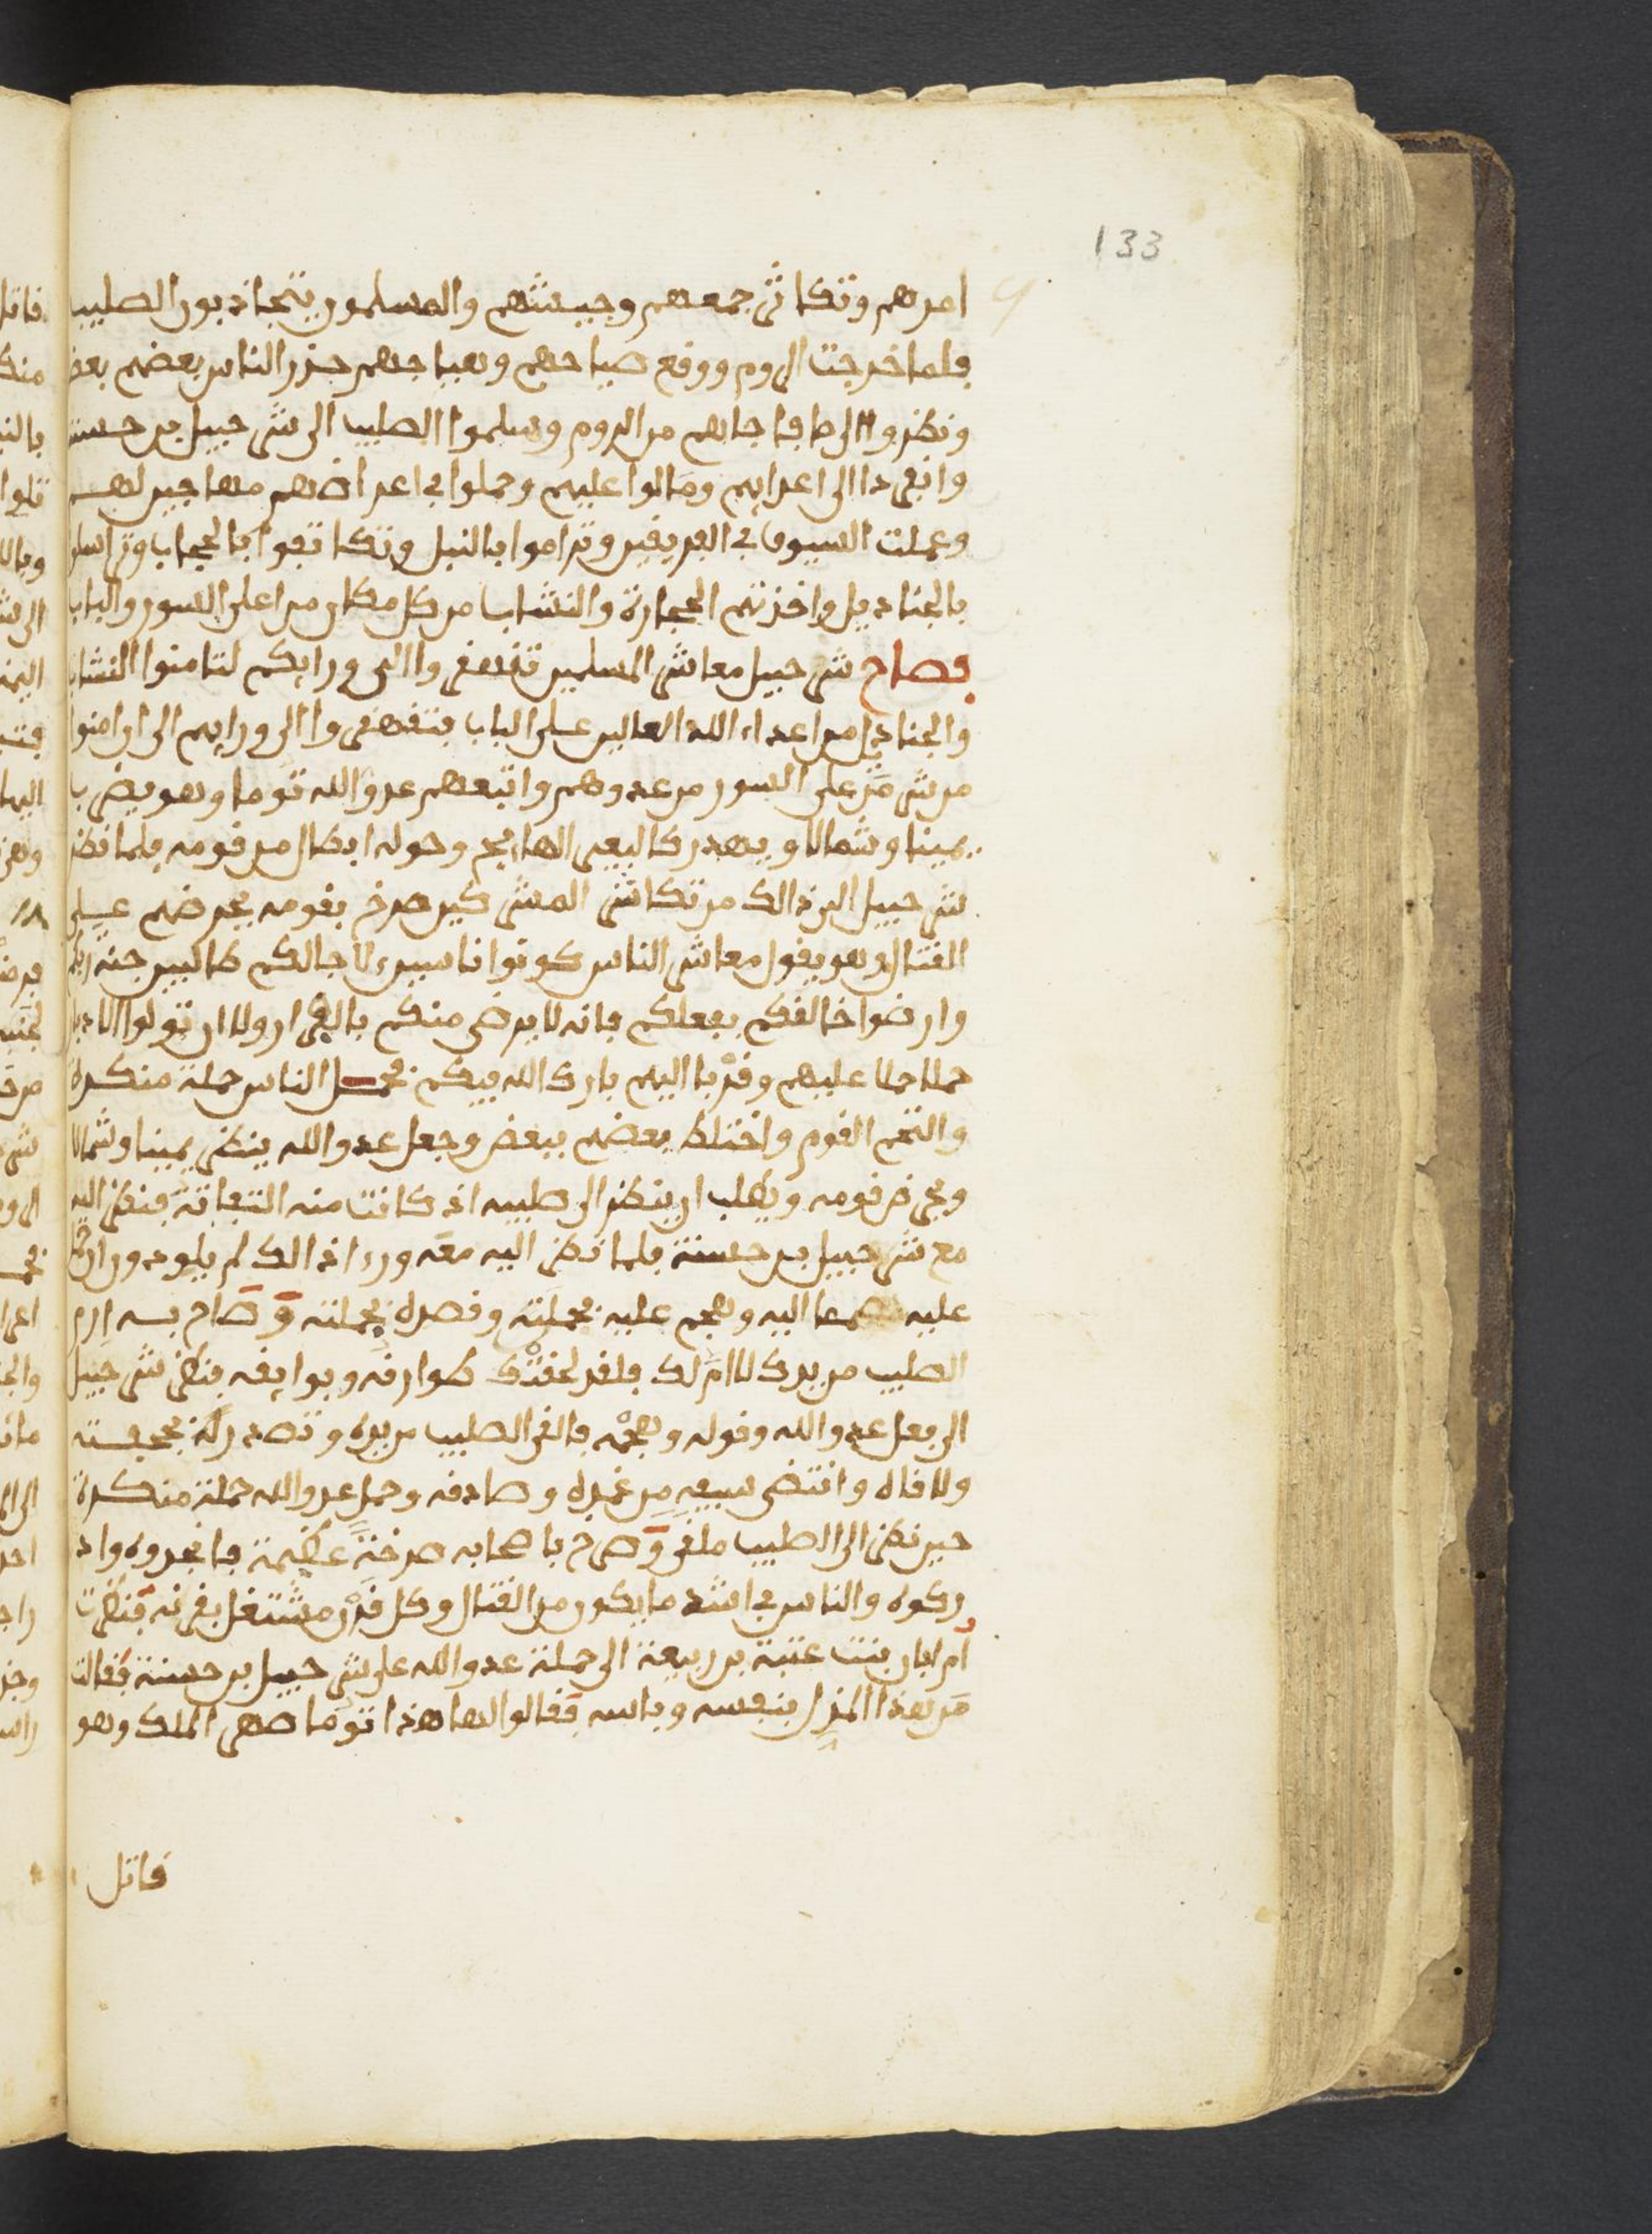 133
امرهم وتكاثر جمعهم وجيشهم والمسلمون يتجاذبون الصليب
فلما خرجت الروم ووقع صياحهم وهياجهم حذر الناس بعضهم بعض
ونظروا الى ما فاجاهم من الروم وسلموا الصليب الى شرحبيل بن حسنة
وانفردا الى اعدايهم ومالوا عليهم وحملوا في اعراضهم مهاجين لهم
وعملت السيوف في الفريقين وتراموا بالنبل وتكاتفوا بالحجاب وتراسلوا
بالجناديل واخذتهم الحجارة والنشاب من كل مكان من اعلى السور والباب
فصاح شرحبيل معاشر المسلمين تقهقروا الى ورايكم لتامنوا النشاب
والجناديل من اعداء الله العالين على الباب فتقهقروا الى ورايهم الى ان امنوا
من شر من على السور من عدوهم واتبعهم عدو الله توما وهو يضرب
يمينا وشمالا ويهدر كالبعير الهايج وحوله ابطال من قومه فلما نظر
شرحبيل الى ذالك من تكاثر المشركين صرخ بقومه يحرضهم على
القتال وهو يقول معاشر الناس كونوا ناسيين لاجالكم طالبين جنة ربكم
وارضوا خالقكم بفعلكم فانه لا يرضى منكم بالفرار ولا ان تولوا الادبار
حملا حملا عليهم وقربا اليهم بارك الله فيكم فحمل الناس حملة منكرة
والتحم القوم واختلط بعضهم ببعض وجعل عدو الله ينظر يمينا وشمالا
ويحرض قومه ويطلب ان ينظر الى صليبه اذ كانت منه التفاتة فنظر اليه
مع شرحبيل بن حسنة فلما نظر اليه معه وراء ذالك لم يلو دون ان
عليه اليه وهجم عليه بحملته وقصده بجملته وصاح به ارم
الصليب من يدك لا ام لك فلقد لحقتك طوارقه وبوايقه فنظر شرحبيل
الى فعل عدو الله وقوله وهجمه فالقى الصليب من يده وتصدر له بحجفته
ولاقاه وانتضى سيفه من غمده وصادفه وحمل عدو الله حملة منكرة
حين نظر الى الصليب ملقى وصرخ باصحابه صرخة عظيمة فانجدوه واد
ركوه والناس في اشد ما يكون من القتال وكل قرن مشتغل بقرنه فنظرت
ام ابان بنت عتبة بن ربيعة الى حملة عدو الله على شرحبيل بن حسنة فقالت
من هذا المذل بنفسه وباسه فقالوا لها هذا توما صهر الملك وهو
قاتل